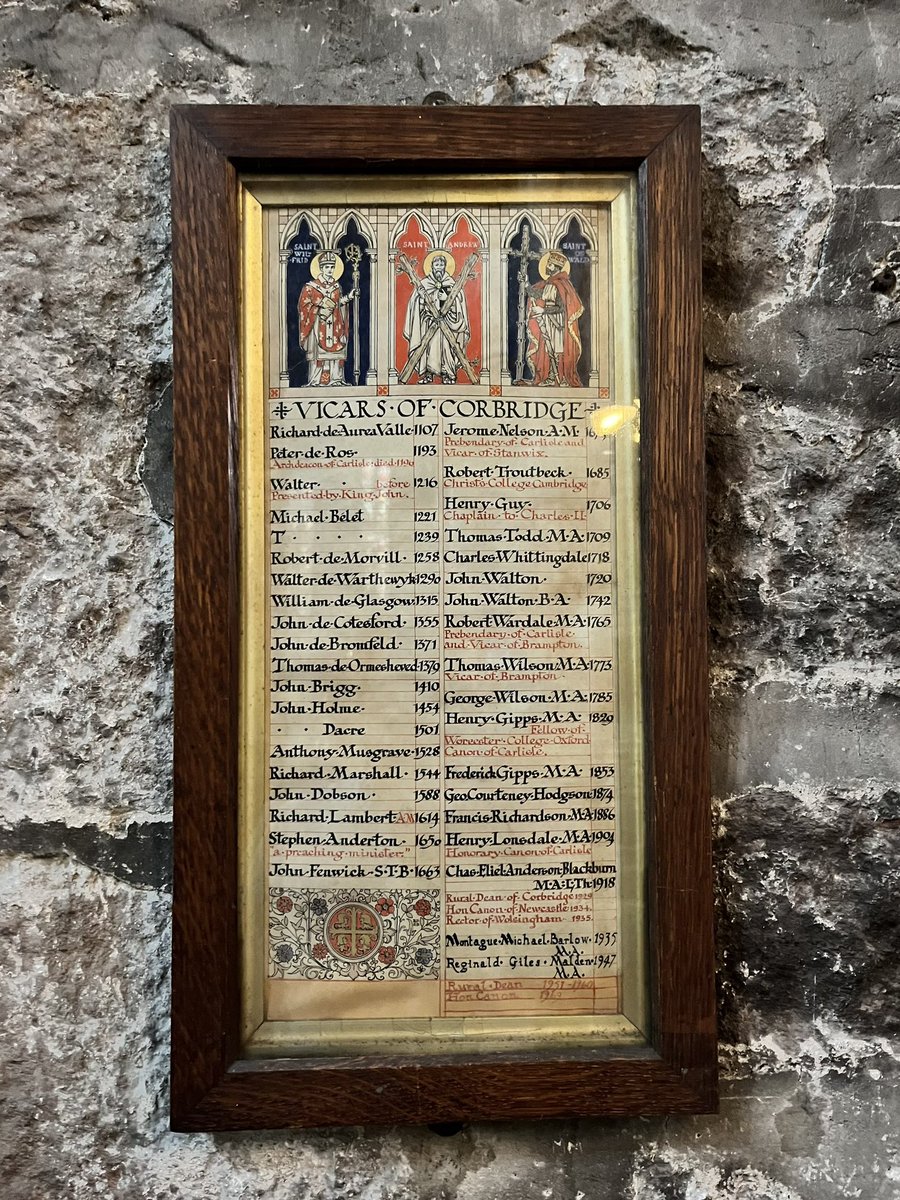 SAINT WIL FRID
SAINT ANDREW
SAINT OS WALD
VICARS·OF·CORBRIDGE
Richard·de·Aurea Valle·1107
Peter·de·Ros· 1193
Archdeacon·of·Carlisle·died·1196
Walter· · before 1216
Presented·by·King·John·
Michael·Bélét 1221
T · · · · 1239
Robert·de·Morvill· 1258
Walter·de·Warthewyk·1290
William·de·Glasgow·1315
John·de·Cotesford· 1355
John·de·Bromfeld· 1371
Thomas·de·Ormesheved·1379
John·Brigg· 1410
John·Holme· 1454
· · Dacre 1501
Anthony·Musgrave·1528
Richard·Marshall· 1544
John·Dobson· 1588
Richard·Lambert A.M. 1614
Stephen·Anderton· 1650
"a·preaching·minister"
John·Fenwick·S·T·B·1663
Jerome·Nelson·A·M·
Prebendary·of·Carlisle·and
Vicar·of·Stanwix·
Robert·Troutbeck· 1685
Christ's·College·Cambridge
Henry·Guy· 1706
Chaplain·to·Charles·II·
Thomas·Todd·M·A·1709
Charles Whittingdale 1718
John·Walton· 1720
John·Walton·B·A· 1742
Robert Wardale·M·A·1765
Prebendary·of·Carlisle·
and·Vicar·of·Brampton·
Thomas·Wilson·M·A·1773
Vicar·of·Brampton·
George·Wilson·M·A·1785
Henry·Gipps·M·A· 1829
Fellow·of·
Worcester·College·Oxford
Canon·of·Carlisle·
Frederick Gipps·M·A· 1853
Geo.Courteney·Hodgson·1874
Francis·Richardson·M·A·1886
Henry·Lonsdale·M·A·1904
Honorary·Canon·of·Carlisle
Chas·Eliel·Anderson·Blackburn
M·A·L·Th·1918
Rural·Dean of Corbridge 1929
Hon Canon·of·Newcastle 1934
Rector·of·Wolsingham· 1935.
Montague·Michael·Barlow·1935
M.A.
Reginald Giles·Malden·1947
M.A.
Rural·Dean 1951-1960
Hon Canon